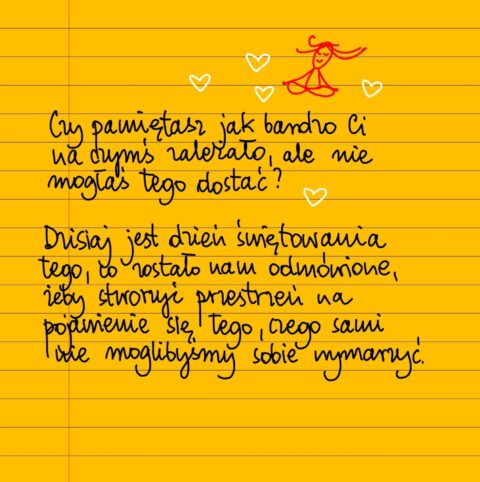 Czy pamiętasz jak bardzo Ci
na czymś zależało, ale nie
mogłaś tego dostać?
Dzisiaj jest dzień świętowania
tego, co zostało nam odmówione,
żeby stworzyć przestrzeń na
pojawienie się tego, czego sami
nie moglibyśmy sobie wymarzyć.